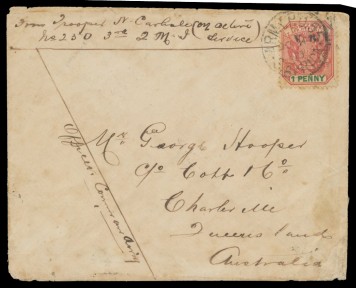 From Trooper N. Carbale (on active
No 250 3rd Q M I service)
1 PENNY
Officer Commanding
Mr Geo George Hooper
C/o Cobb & Co
Charleville
Queensland
Australia